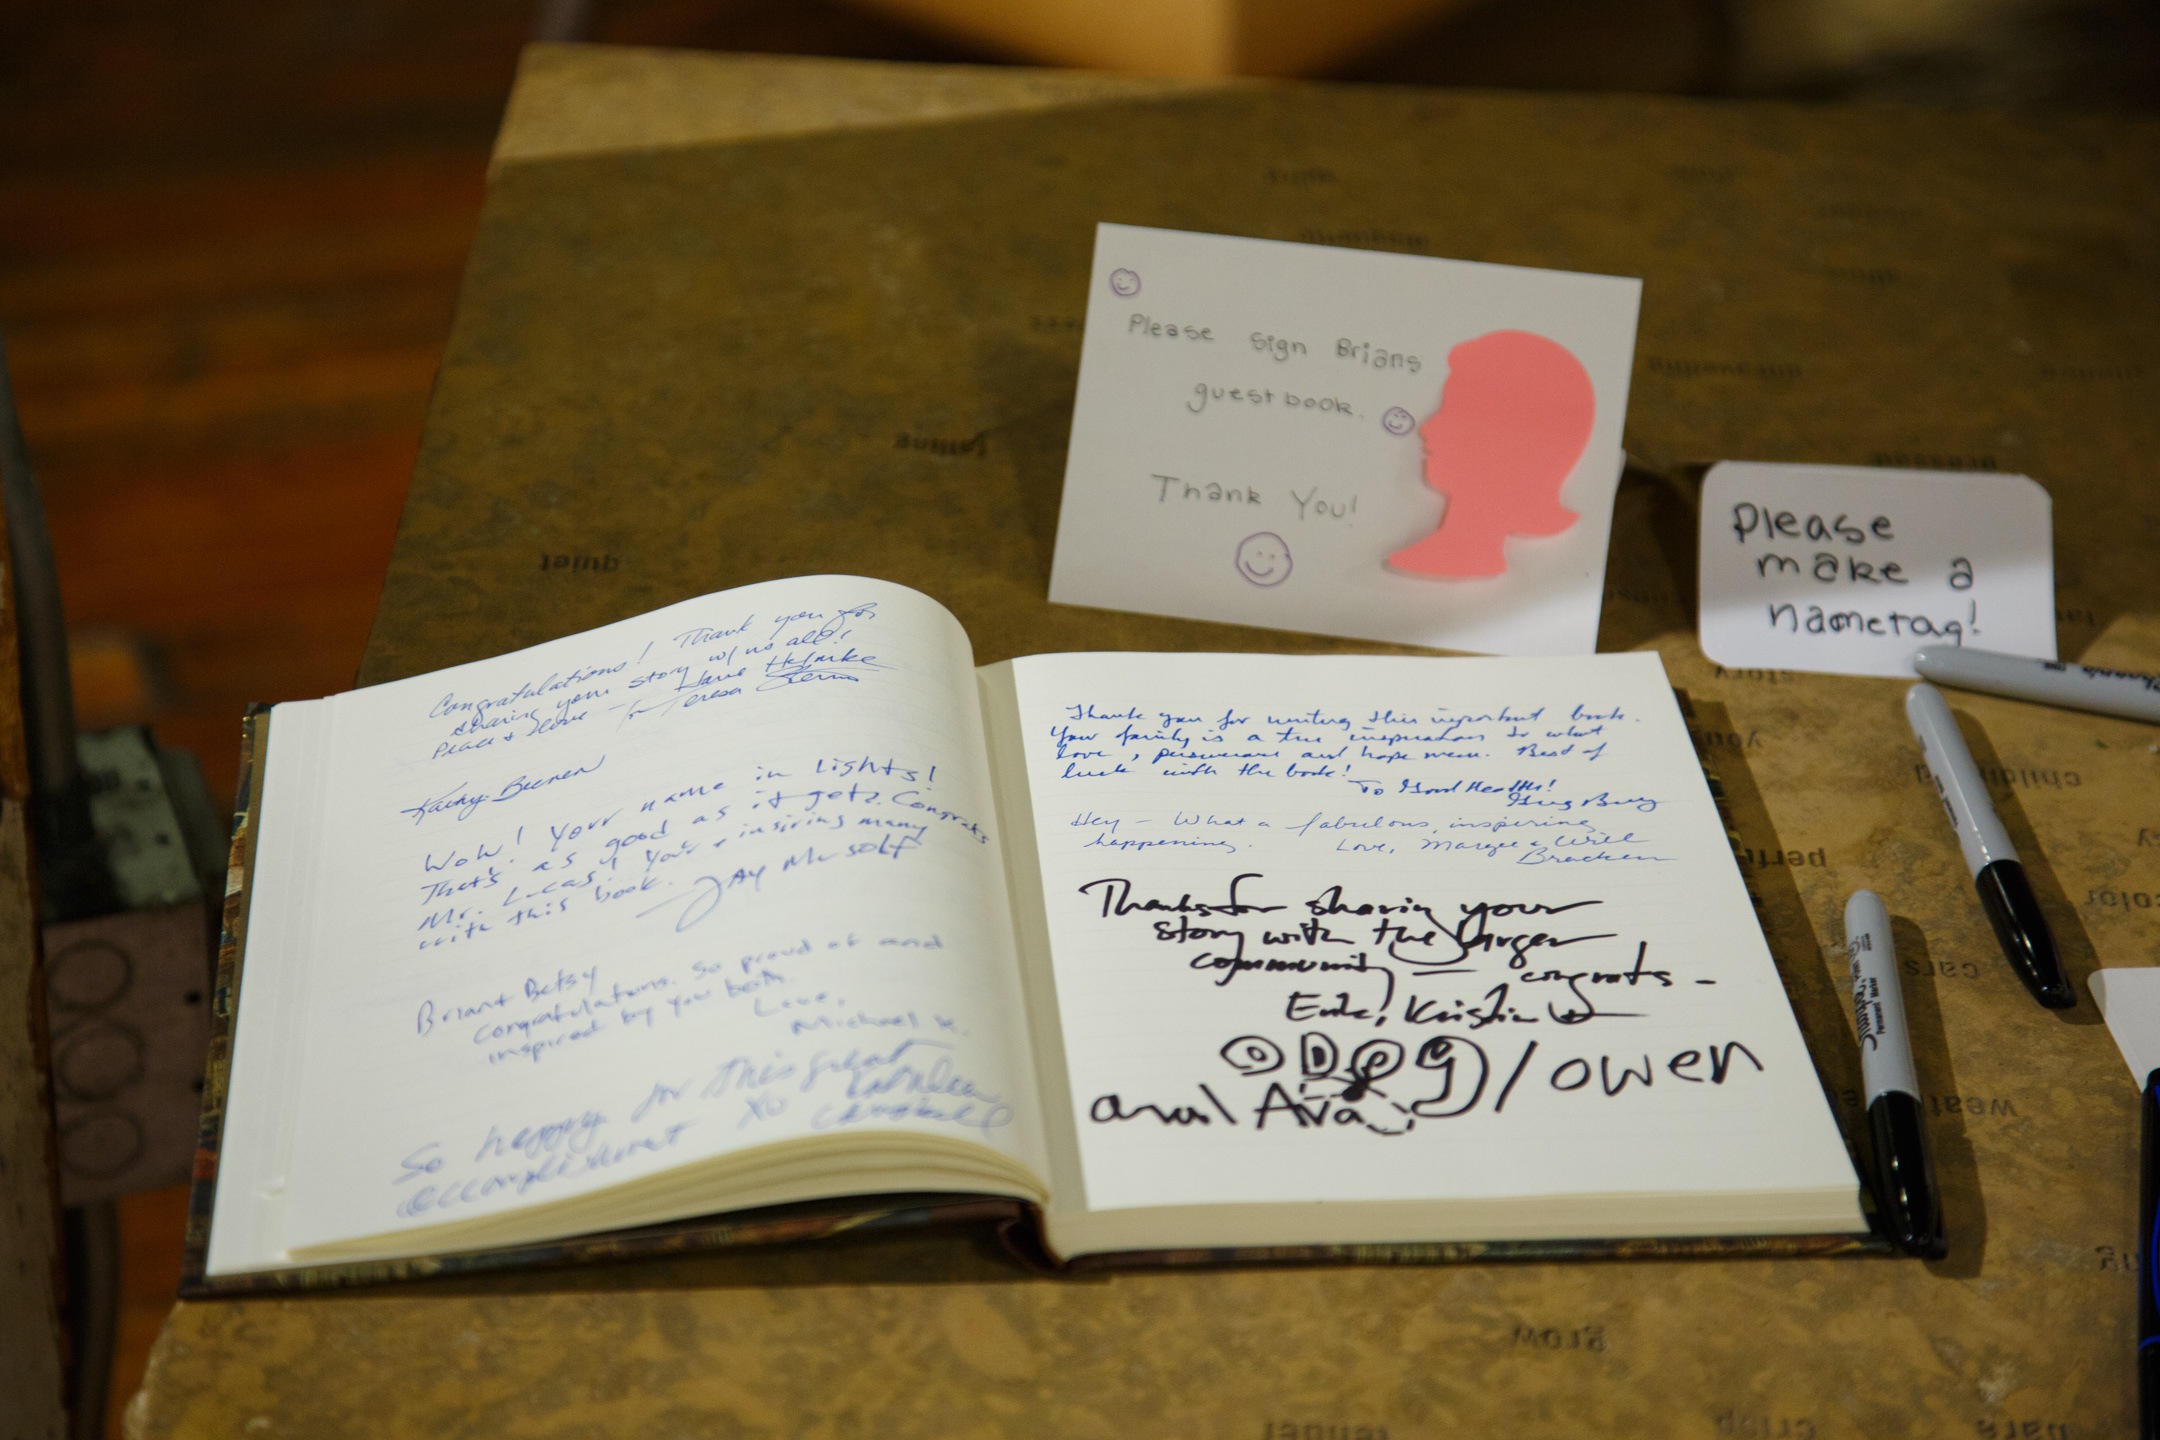 Please sign Brians
guest book.
Thank You!
Please
make a
nametag!
Congratulations! Thank you for
sharing your story w/ us all!
Peace + Love -
Teresa
Kathy
Wow! Your name in Lights!
That's as good as it gets. Congrats
Mr. Lucas! You're insiring many
with this book.
Jay
Brian + Betsy
Congratulations. So proud of and
inspired by you both.
Love,
Michael K.
So happy for this great
accomplishment XO
Thank you for writing this important book.
Your family is a true inspiration to what
love, perseverance and hope mean. Best of
luck with the book!
To Good Health!
Hey - What a fabulous, inspiring
happening. Love, Margee & Will
Bracken
Thanks for sharing your
story with the larger
community - congrats -
Kristin
owen
and Ava
quiet
story
childhood
perfume
color
cars
weather
grow
tender
crisp
Sharpie
Sharpie